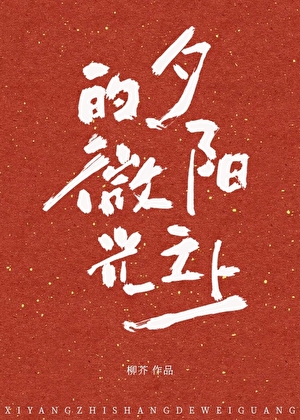 夕阳之上
的微光
柳芥 作品
XIYANGZHISHANGDEWEIGUANG